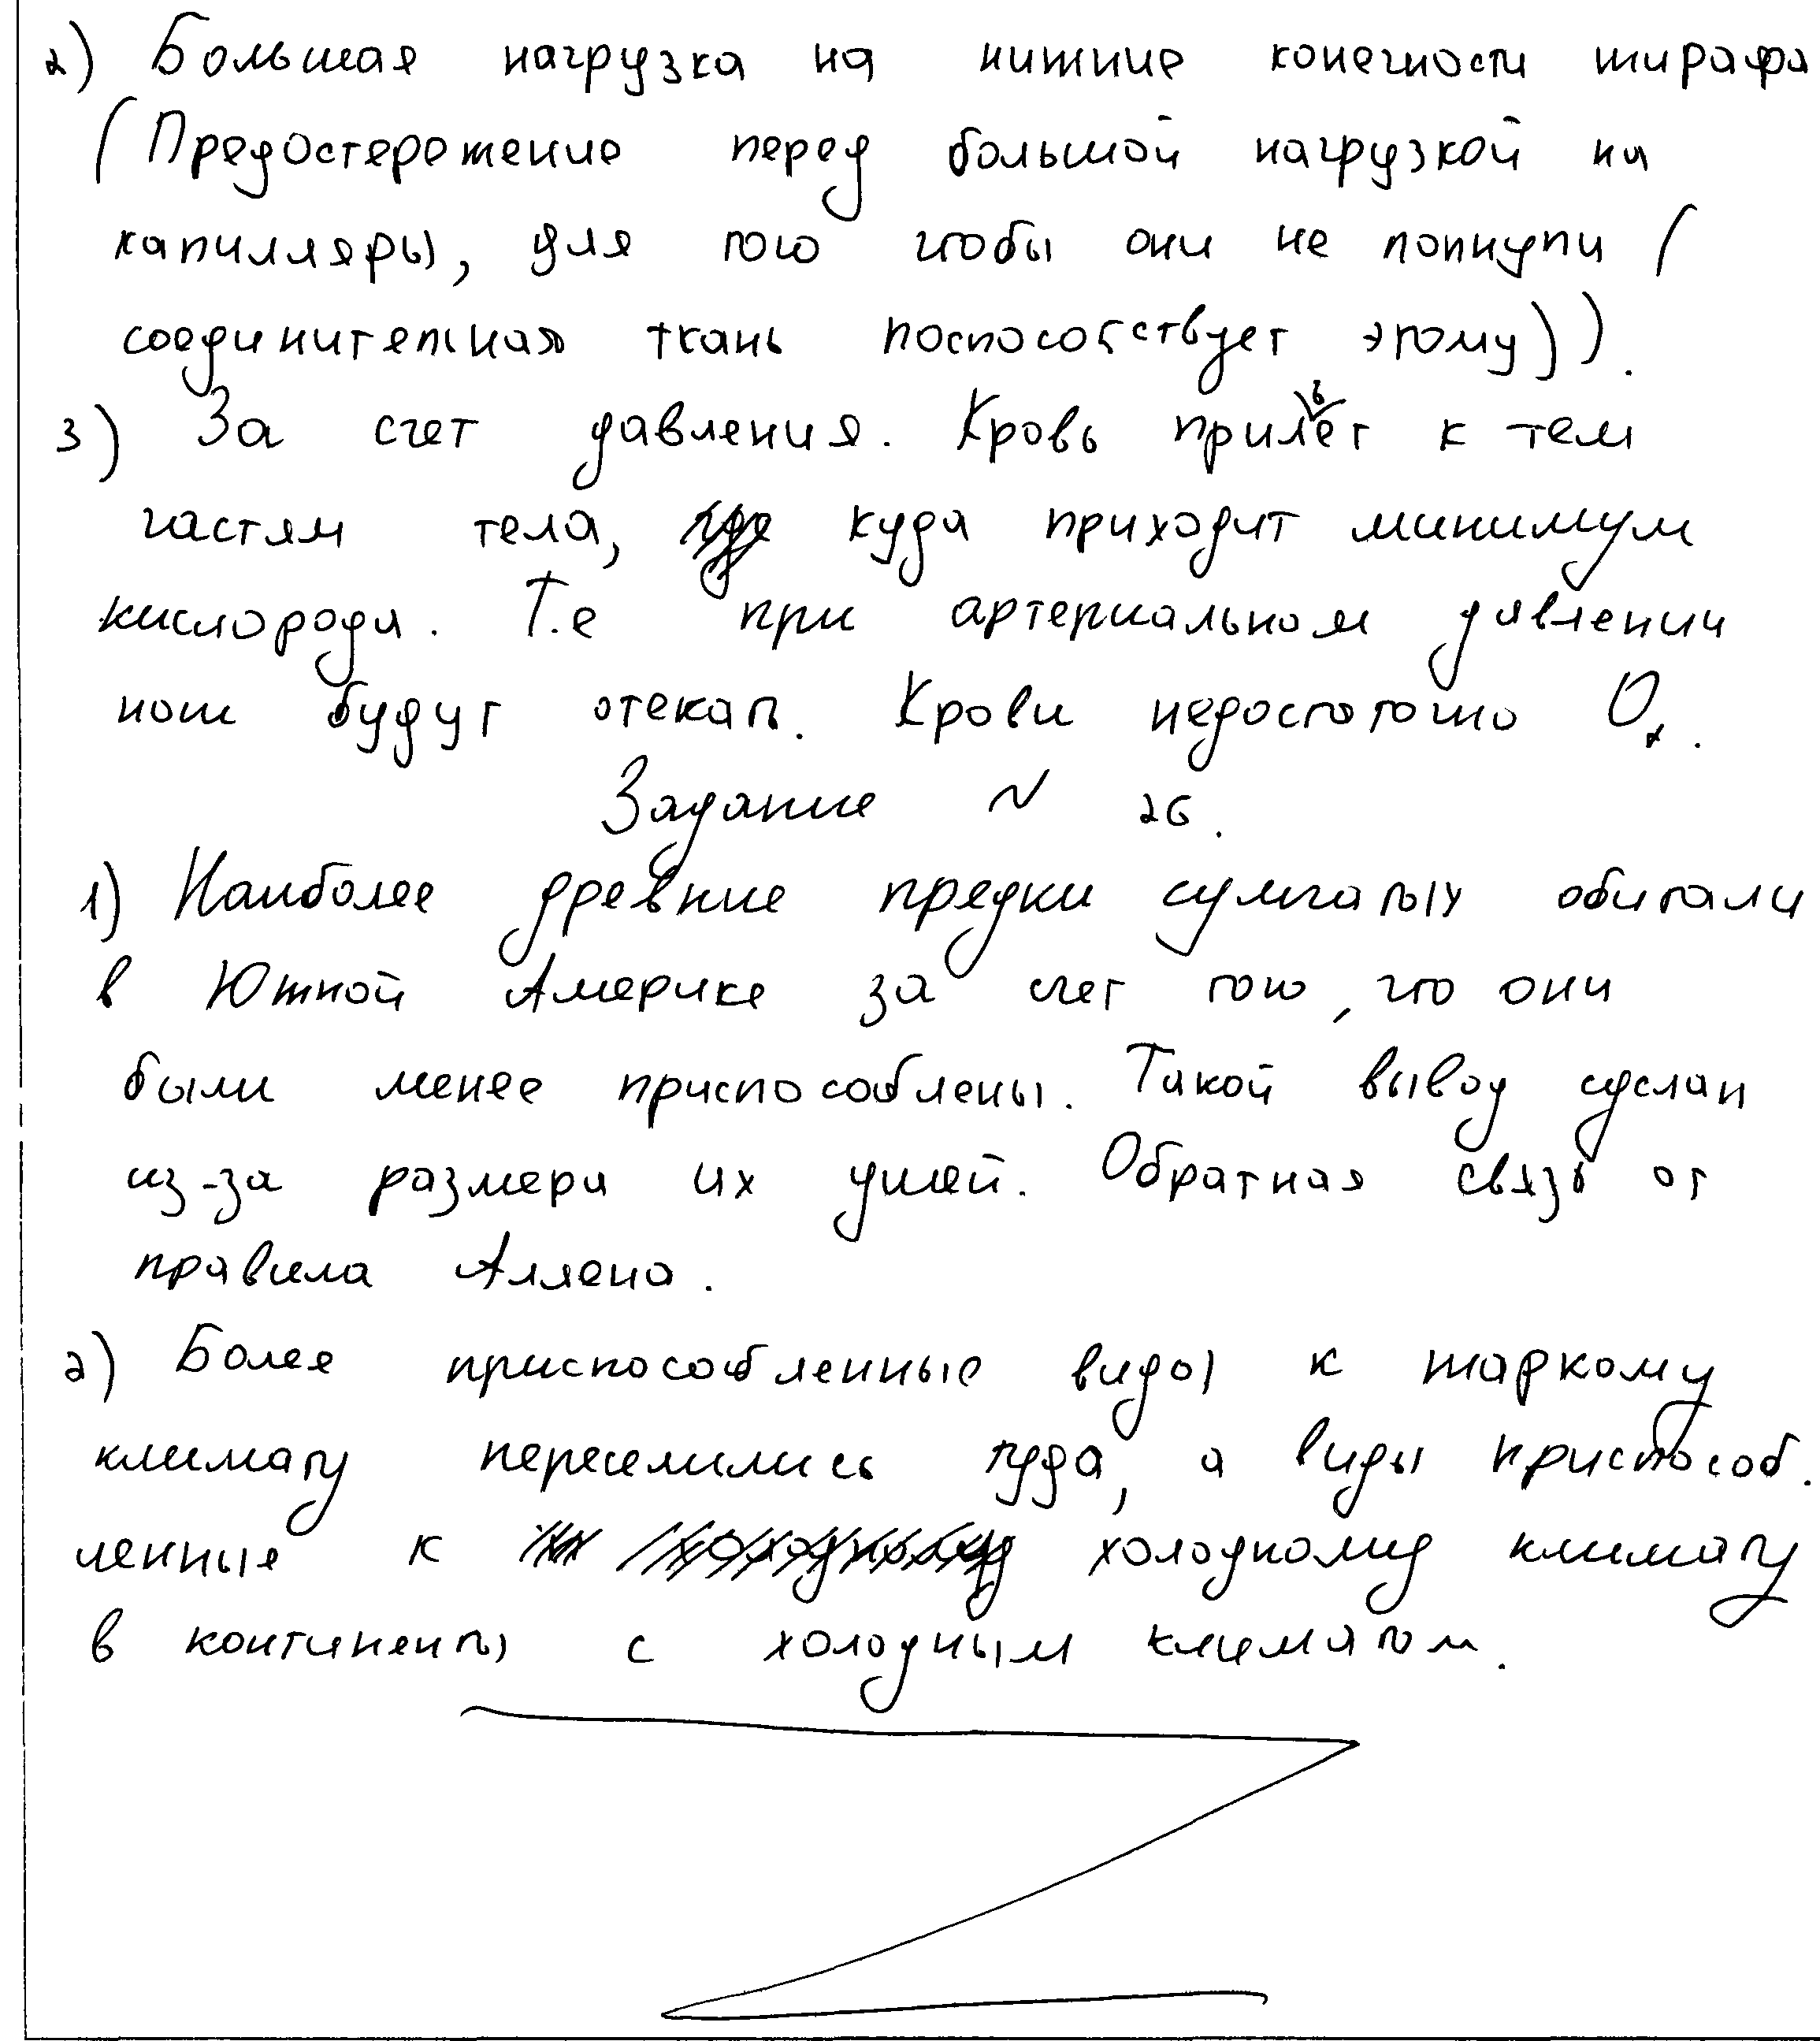 2) Большая нагрузка на нижние конечности жирафа
(Предостережение перед большой нагрузкой на
капилляры, для того чтобы они не лопнули (
соединительная ткань поспособствует этому)).
3) За счет давления. Кровь прильёт к тем
частям тела, куда приходит минимум
кислорода. Т.е при артериальном давлении
ноги будут отекать. Крови недостаточно O₂.
Задание № 26.
1) Наиболее древние предки сумчатых обитали
в Южной Америке за счет того, что они
были менее приспособлены. Такой вывод сделан
из-за размера их ушей. Обратная связь от
правила Аллена.
2) Более приспособленные виды к жаркому
климату переселились туда, а виды приспособ.
ленные к холодному климату
в континенты с холодным климатом.